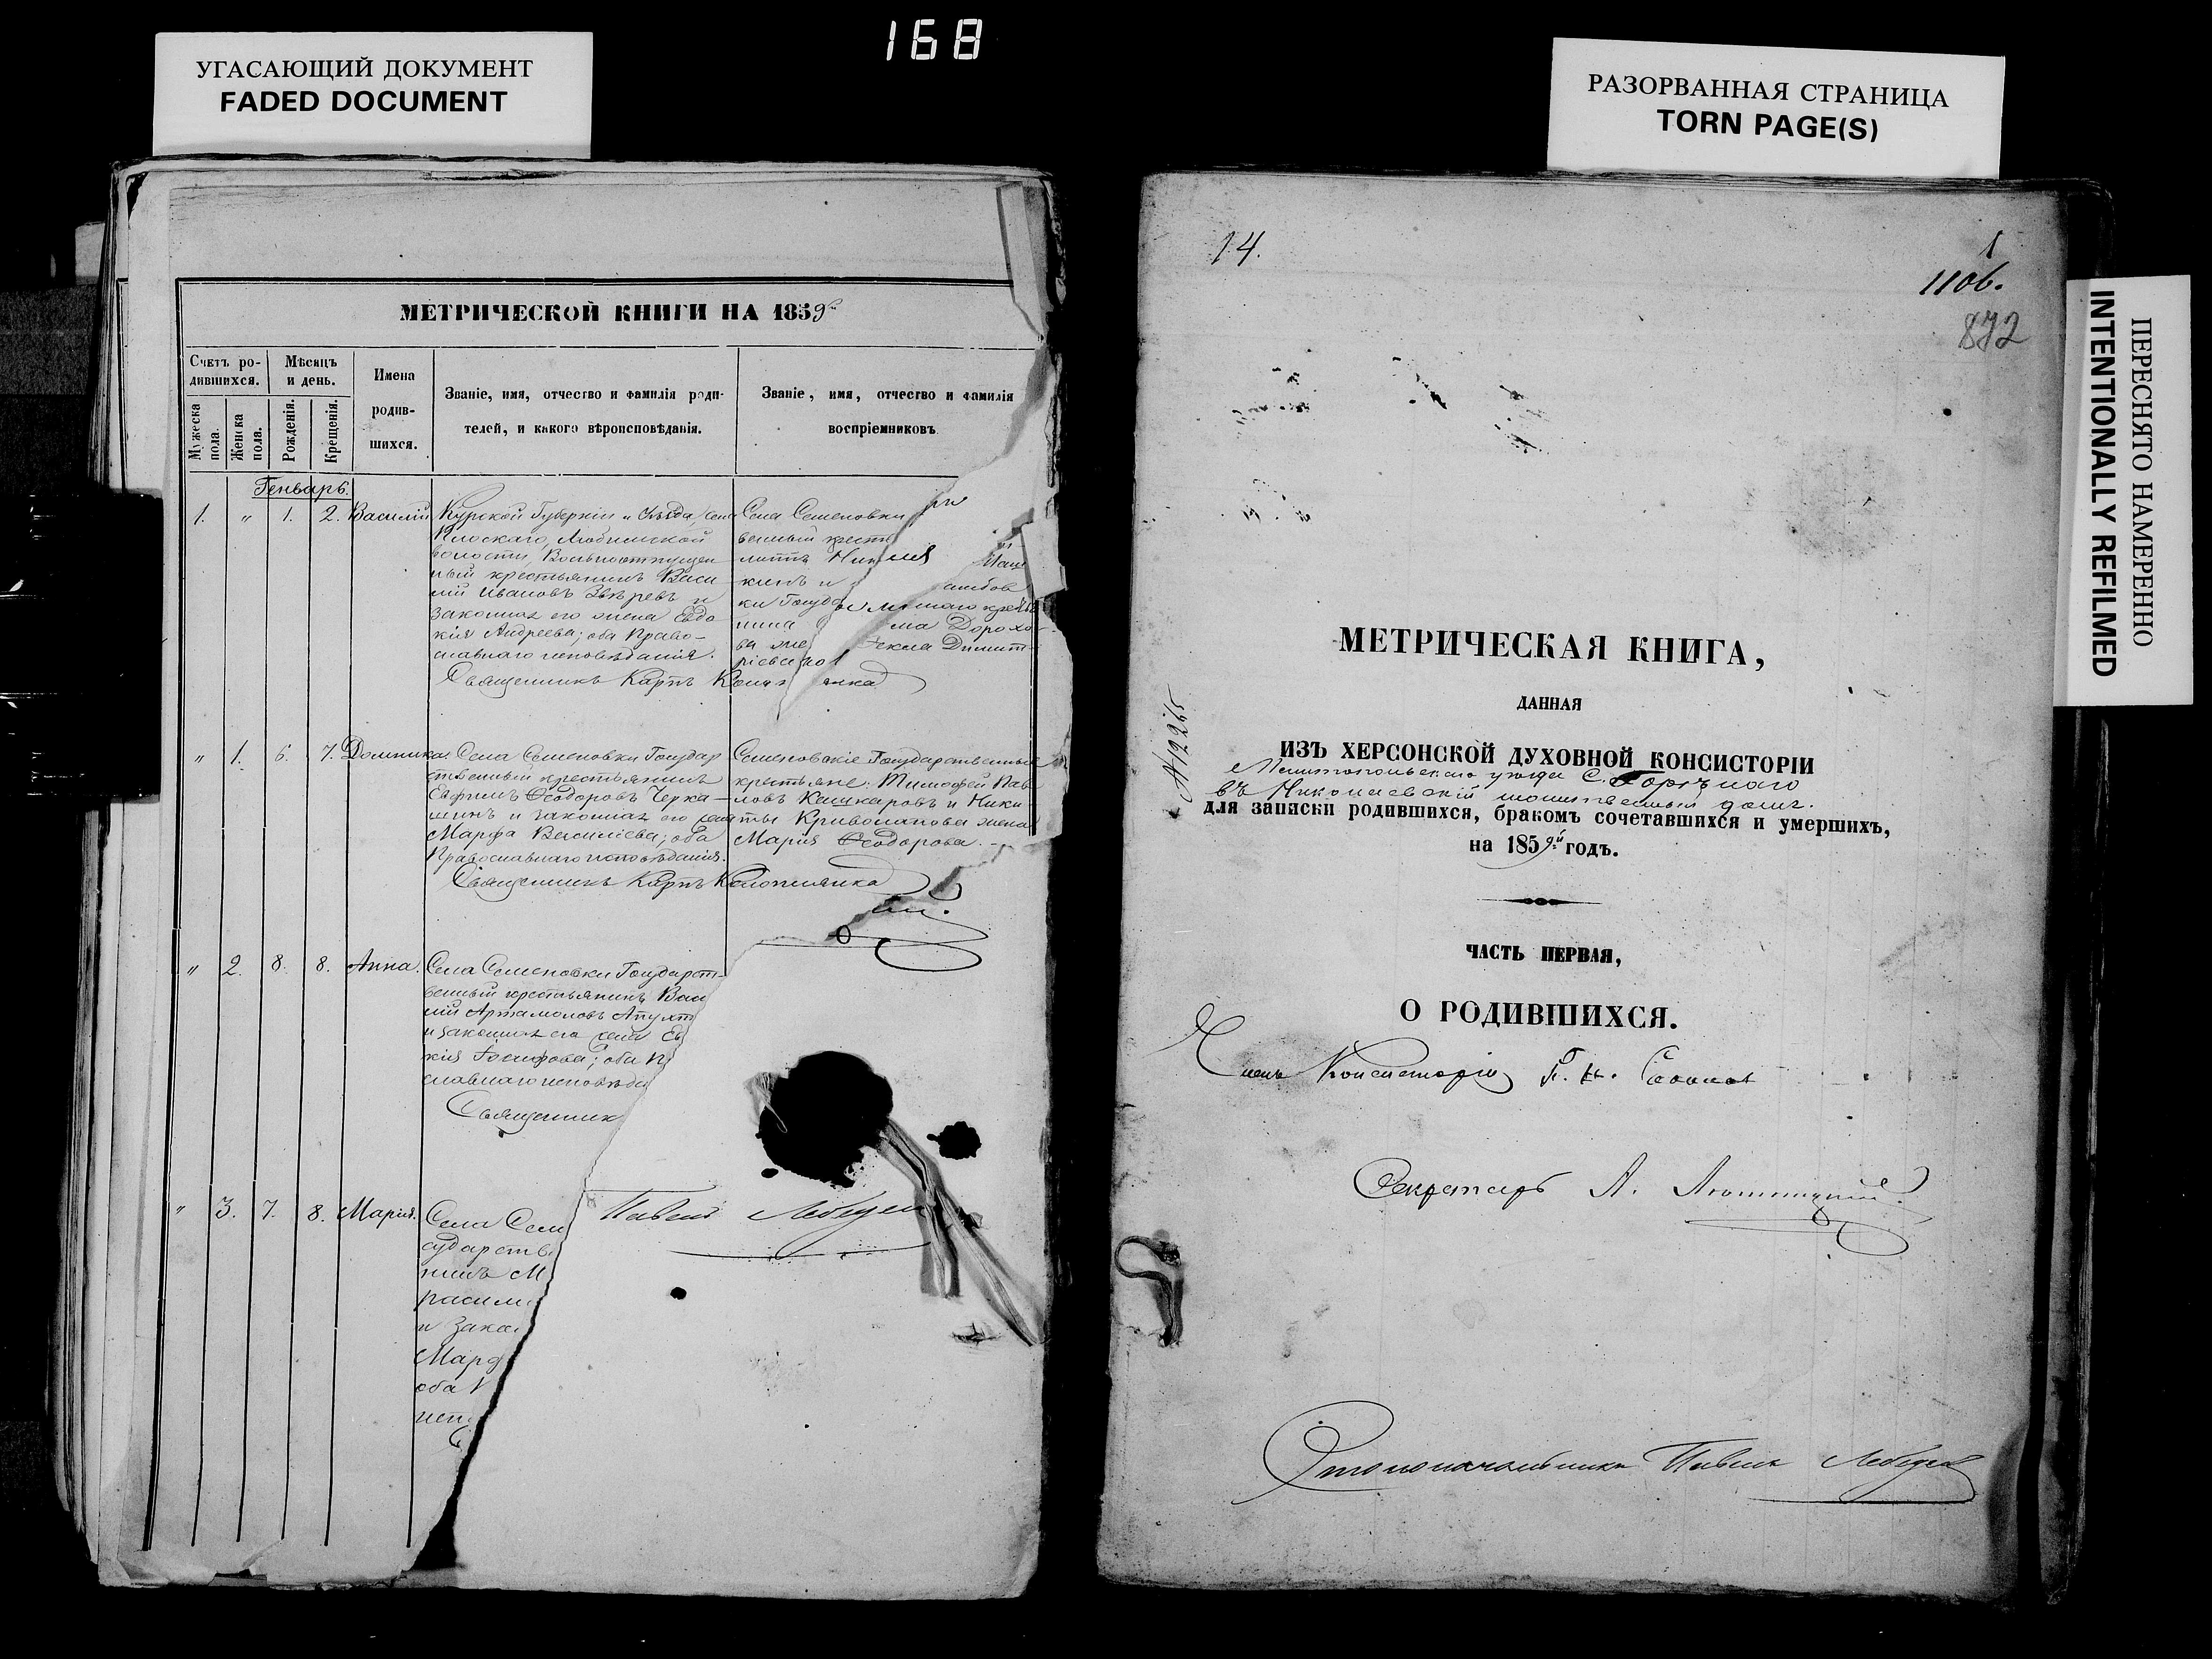 168
УГАСАЮЩИЙ ДОКУМЕНТ
FADED DOCUMENT
РАЗОРВАННАЯ СТРАНИЦА
TORN PAGE(S)
ПЕРЕСНЯТО НАМЕРЕННО
INTENTIONALLY REFILMED
МЕТРИЧЕСКОЙ КНИГИ НА 1859
Счетъ ро-
дившихся.
Мѣсяцъ
и день.
Имена
родив-
шихся.
Званіе, имя, отчество и фамилія роди-
телей, и какого вѣроисповѣданія.
Званіе, имя, отчество и фамилія
воспріемниковъ
Мужеска
пола.
Женска
пола.
Рожденія.
Крещенія.
Генварь.
1. " 1. 2. Василій
Курской Губерніи и уѣзда, села
Плоскаго,
волости, Вольноотпущен
ный крестьянинъ Васи
лій Ивановъ Звѣревъ и
законная его жена Евдо
кія Андреева; оба Право-
славнаго исповѣданія.
Села Семеновки
венный крест
кинъ и
ки Госуда
нина ма Дорохо
ва же Ѳекла Димит
ріева
Священникъ Карпъ
" 1. 6. 7. Домника.
Села Семеновки Государ
ственный крестьянинъ
Евфимъ Ѳеодоровъ Черка-
шинъ и законная его жена
Марфа Василіева; оба
Православнаго исповѣданія.
Семеновскіе Государственные
крестьяне: Тимофей Пав
ловъ Кашкаровъ и Ники
ты Кривошапова жена
Марія Ѳеодорова.
Священникъ Карпъ
" 2. 8. 8. Анна.
Села Семеновки Государст-
венный крестьянинъ Васи
лій Артамоновъ Апухт
и законная его жена Ев
кія Іосифова; оба П
славнаго исповѣда
Священник
" 3. 7. 8. Марія.
Села Семе
сударстве
нинъ М
и зако
Марф
оба
испо
Павелъ Лебедев
14.
1
110б.
872
№1226
МЕТРИЧЕСКАЯ КНИГА,
ДАННАЯ
ИЗЪ ХЕРСОНСКОЙ ДУХОВНОЙ КОНСИСТОРІИ
Мелитопольскаго уѣзда С. Горѣлаго
въ Николаевскій молитвенный домъ.
для записки родившихся, бракомъ сочетавшихся и умершихъ,
на 1859й годъ.
ЧАСТЬ ПЕРВАЯ,
О РОДИВШИХСЯ.
Членъ Консисторіи
Секретарь А.
Столоначальникъ Павелъ Лебедев